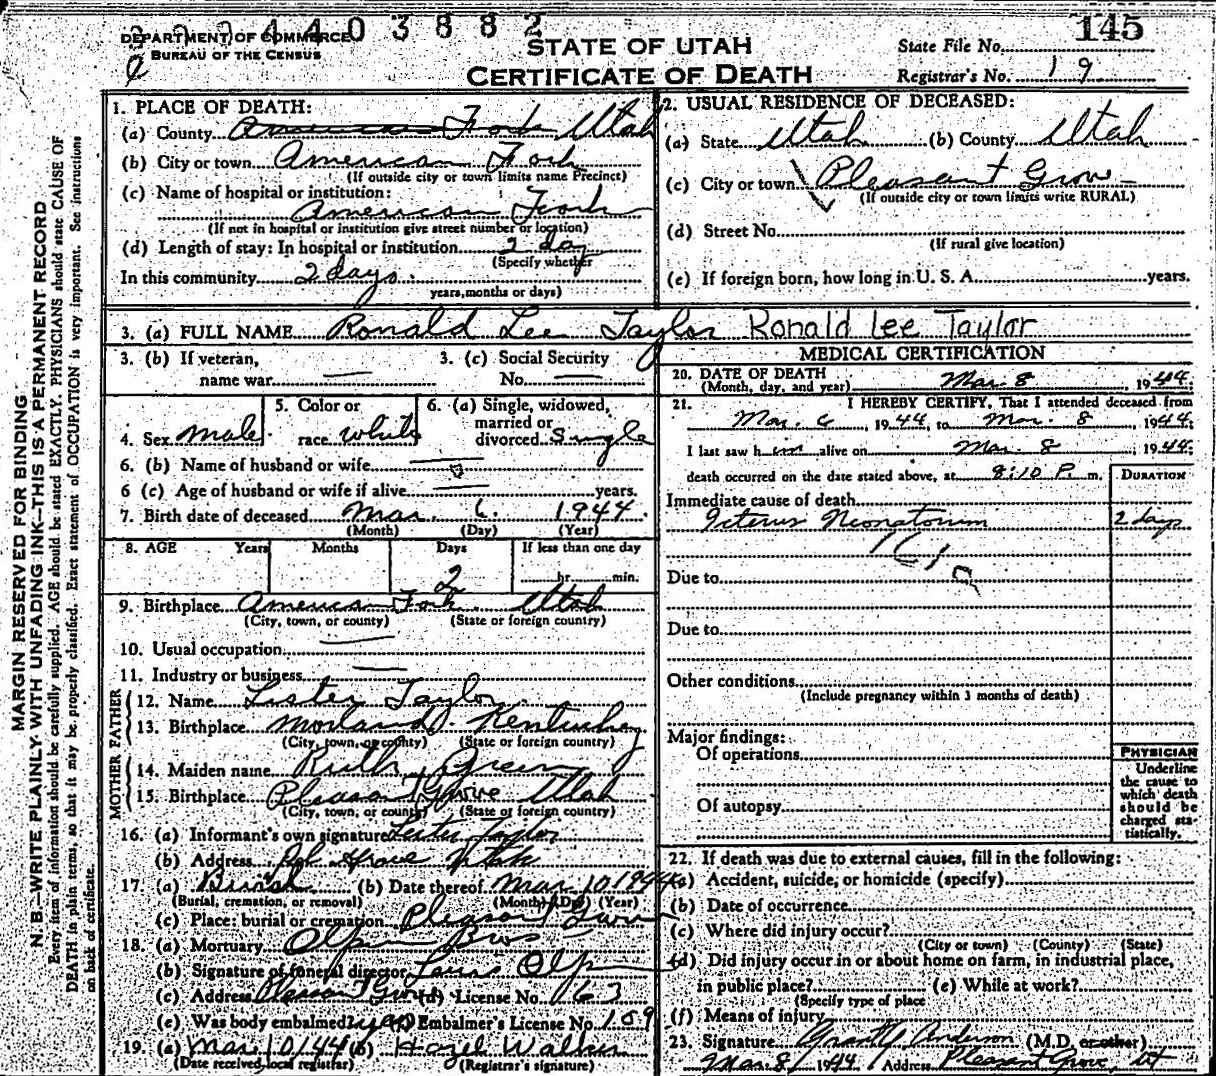 DEPARTMENT OF COMMERCE 0 3 8 8 2
BUREAU OF THE CENSUS
STATE OF UTAH
CERTIFICATE OF DEATH
State File No. 145
Registrar's No. 19
MARGIN RESERVED FOR BINDING
N.B.—WRITE PLAINLY WITH UNFADING INK—THIS IS A PERMANENT RECORD
Every item of information should be carefully supplied. AGE should be stated EXACTLY. PHYSICIANS should state CAUSE OF
DEATH in plain terms, so that it may be properly classified. Exact statement of OCCUPATION is very important. See instructions
on back of certificate.
1. PLACE OF DEATH:
(a) County American Fork Utah
(b) City or town American Fork
(If outside city or town limits name Precinct)
(c) Name of hospital or institution:
American Fork
(If not in hospital or institution give street number or location)
(d) Length of stay: In hospital or institution 2 day
(Specify whether
In this community 2 days.
years, months or days)
2. USUAL RESIDENCE OF DECEASED:
(a) State Utah (b) County Utah
(c) City or town Pleasant Grove
(If outside city or town limits write RURAL)
(d) Street No.
(If rural give location)
(e) If foreign born, how long in U. S. A. years.
3. (a) FULL NAME Ronald Lee Taylor Ronald Lee Taylor
3. (b) If veteran, 3. (c) Social Security
name war — No. —
4. Sex male 5. Color or race white 6. (a) Single, widowed, married or divorced Single
6. (b) Name of husband or wife —
6 (c) Age of husband or wife if alive — years.
7. Birth date of deceased Mar. 6. 1944.
(Month) (Day) (Year)
8. AGE Years Months Days If less than one day
2 hr. min.
9. Birthplace American Fork Utah
(City, town, or county) (State or foreign country)
10. Usual occupation —
11. Industry or business —
FATHER
12. Name Lester Taylor
13. Birthplace Morland Kentucky
(City, town, or county) (State or foreign country)
MOTHER
14. Maiden name Ruth Green
15. Birthplace Pleasant Grove Utah
(City, town, or county) (State or foreign country)
16. (a) Informant's own signature Lester Taylor
(b) Address Pl Grove Utah
17. (a) Burial (b) Date thereof Mar 10 1944
(Burial, cremation, or removal) (Month) (Day) (Year)
(c) Place: burial or cremation Pleasant Grove
18. (a) Mortuary Olpin Bros
(b) Signature of funeral director Olpin
(c) Address Pleasant Grove (d) License No. 163
(e) Was body embalmed yes Embalmer's License No. 159
19. (a) Mar 10 1944 (b) Hazel Walker
(Date received local registrar) (Registrar's signature)
MEDICAL CERTIFICATION
20. DATE OF DEATH
(Month, day, and year) Mar. 8, 1944.
21. I HEREBY CERTIFY, That I attended deceased from
Mar. 6, 1944, to Mar. 8, 1944;
I last saw him alive on Mar. 8, 1944;
death occurred on the date stated above, at 8:10 P. m. DURATION
Immediate cause of death
Icterus Neonatorum 2 days
161
Due to
Due to
Other conditions
(Include pregnancy within 3 months of death)
Major findings:
Of operations
Of autopsy
PHYSICIAN
Underline
the cause to
which death
should be
charged sta-
tistically.
22. If death was due to external causes, fill in the following:
(a) Accident, suicide, or homicide (specify)
(b) Date of occurrence
(c) Where did injury occur?
(City or town) (County) (State)
(d) Did injury occur in or about home on farm, in industrial place,
in public place? (e) While at work?
(Specify type of place
(f) Means of injury
23. Signature Grant Y. Anderson (M.D. or other)
Mar. 8, 1944 Address Pleasant Grove, Ut